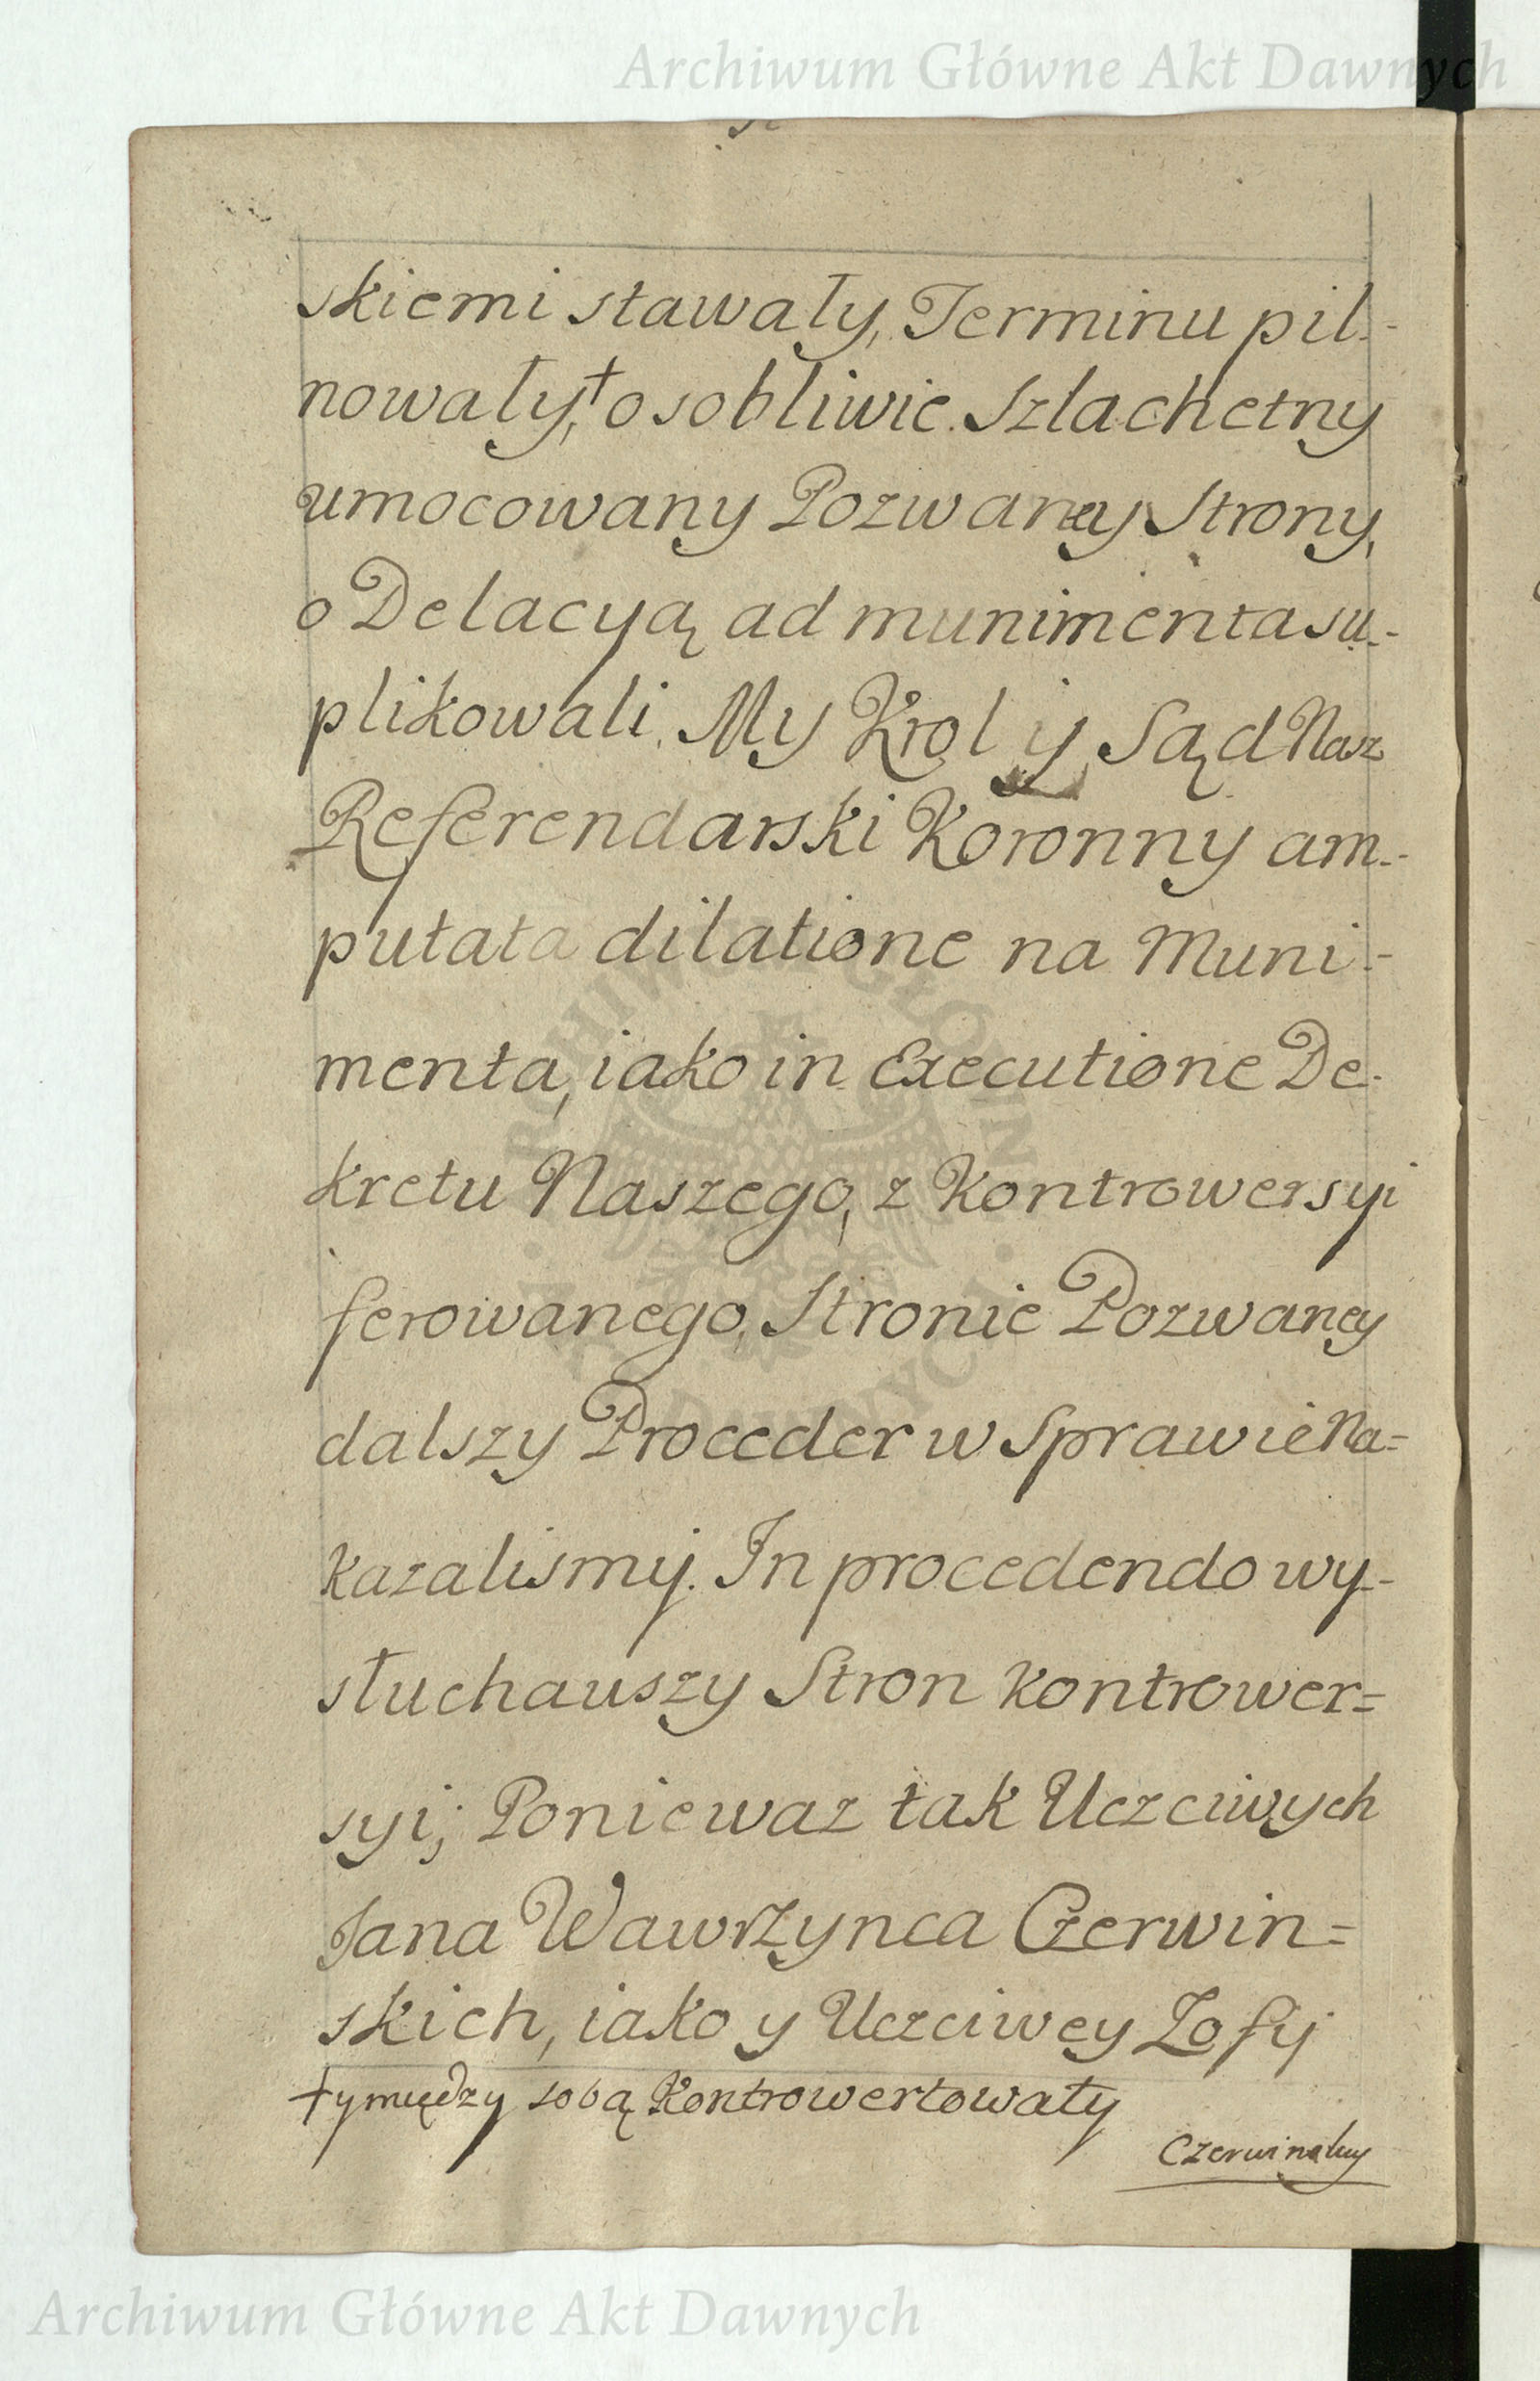 Archiwum Główne Akt Dawnych
skiemi stawały, Terminu pil-
nowały,† osobliwie Szlachetny
umocowany Pozwaney Strony,
o Delacyą ad munimenta su-
plikowali. My Krol y Sąd Nasz
Referendarski Koronny am-
putata dilatione na Muni-
menta, iako in Executione De-
kretu Naszego, z Kontrowersyi
ferowanego, Stronie Pozwaney
dalszy Proceder w Sprawie Na=
kazalismy. In procedendo wy-
słuchauszy Stron kontrower=
syi; Poniewaz tak Uczciwych
Jana Wawrzynca Czerwin=
skich, iako y Uczciwey Zofij
† y między sobą Kontrowertowały
Archiwum Główne Akt Dawnych